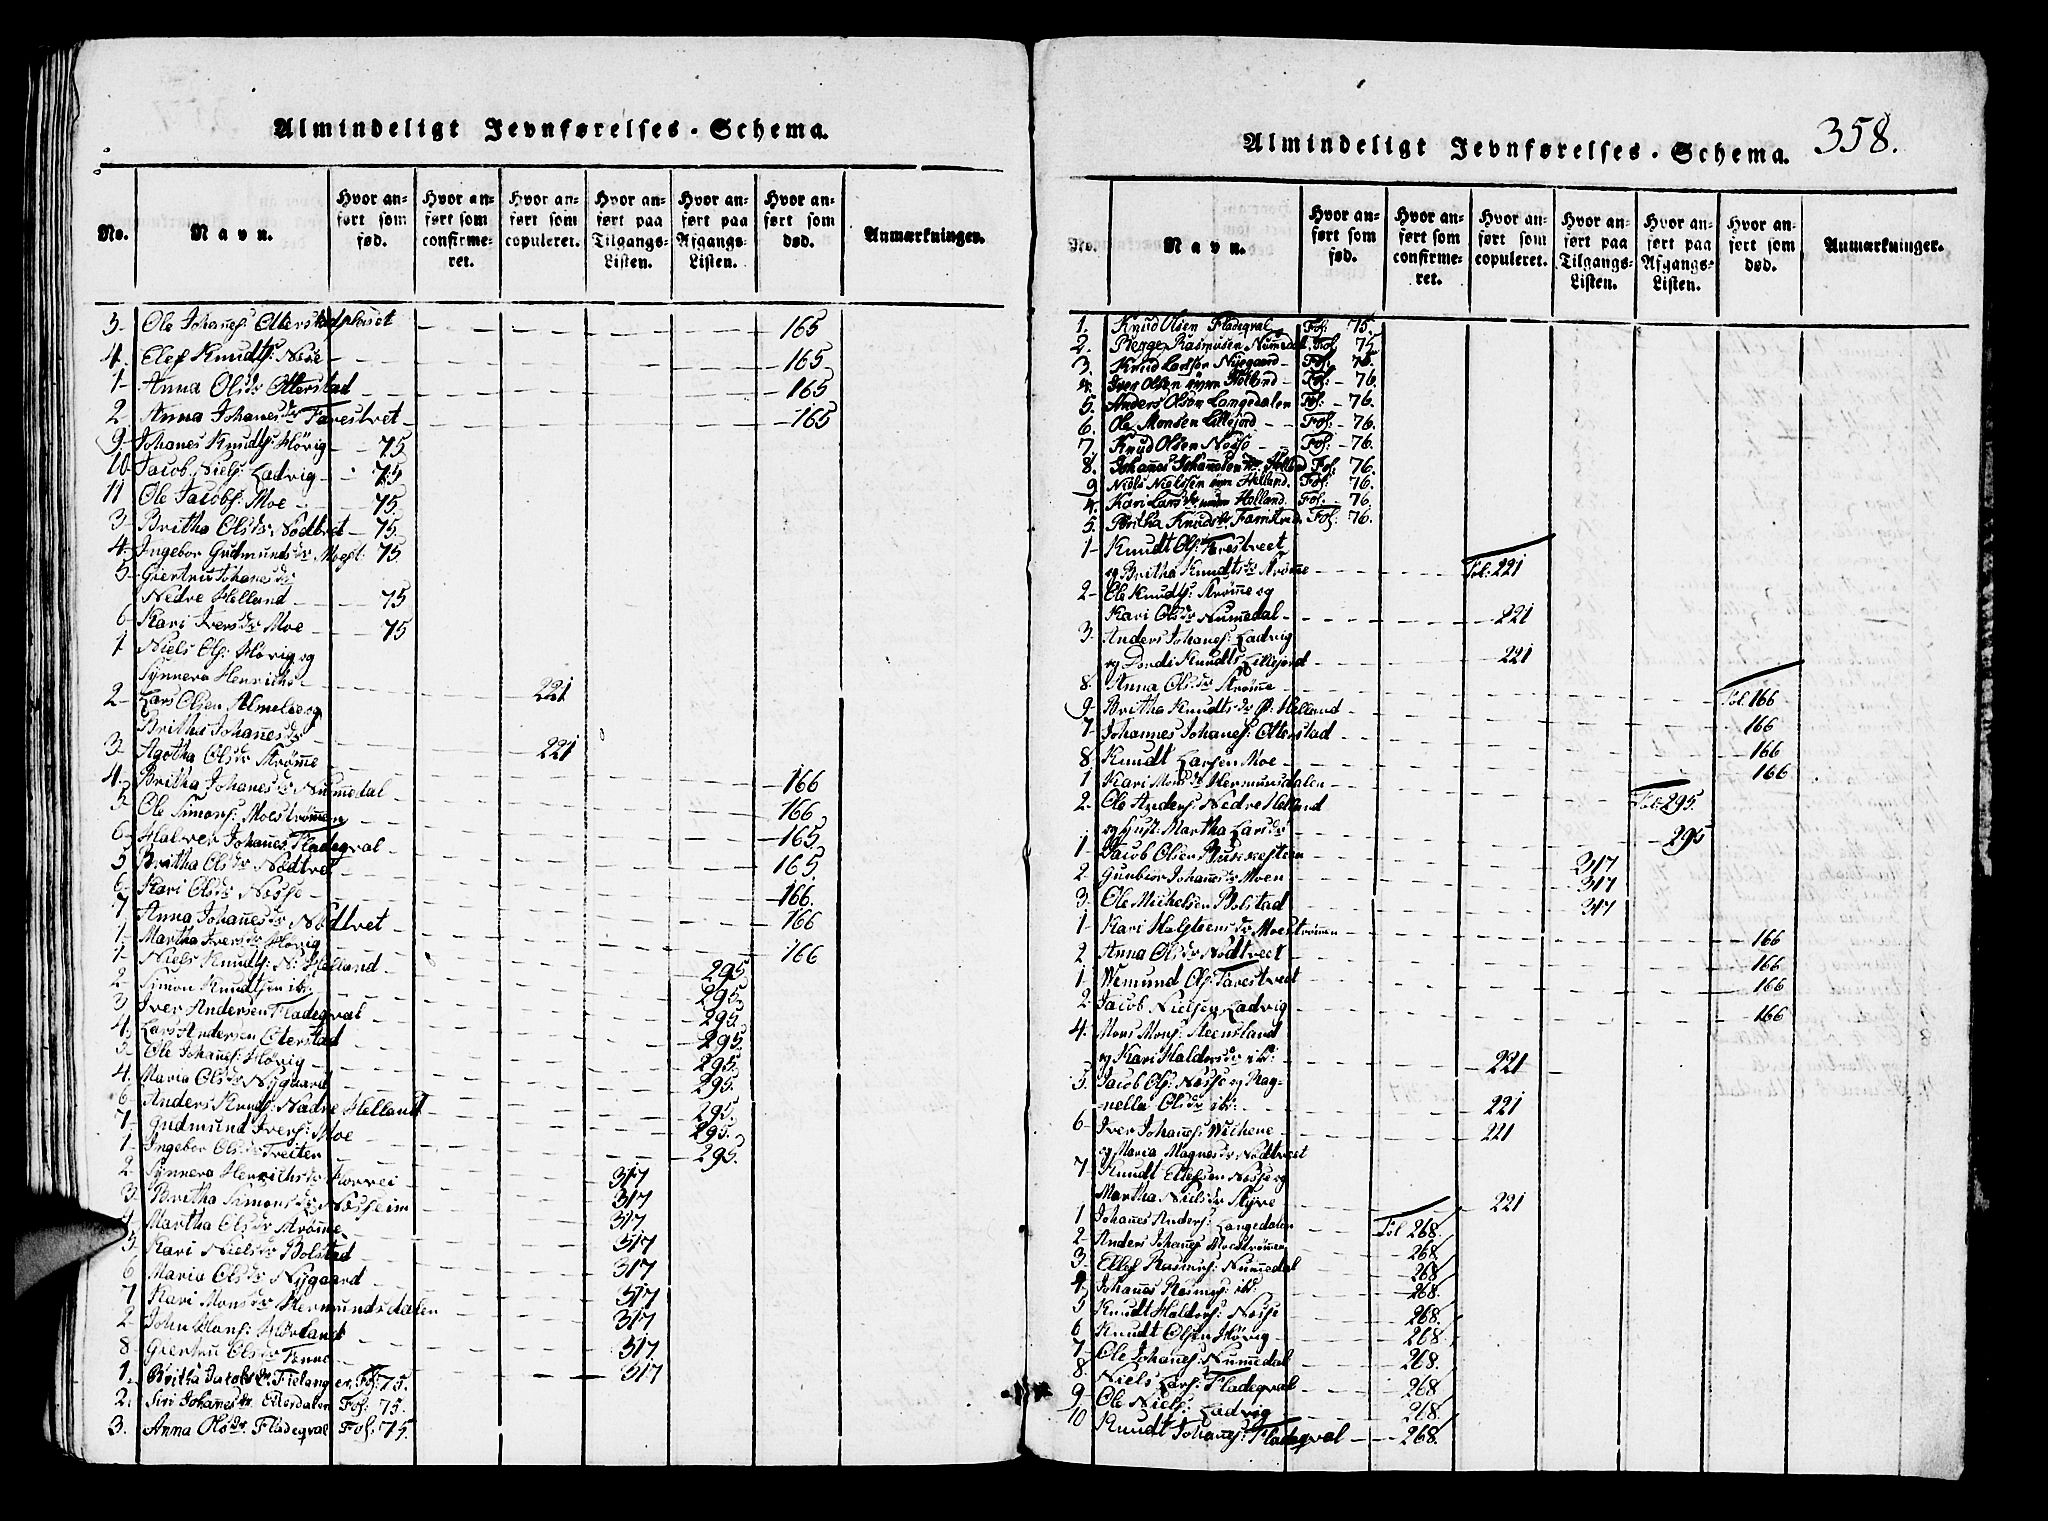 Almindeligt Jevnførelses-Schema.
No.
Navn.
Hvor anført som fød.
Hvor anført som confirmeret.
Hvor anført som copuleret.
Hvor anført paa Tilgangs-Listen.
Hvor anført paa Afgangs-Listen.
Hvor anført som død.
Anmærkninger.
3- Ole Johanes: Otterstad 165
4. Elef Knudts: 165
1- Anna Olsdr Otterstad 165
2. Anna Johanesdr Farestvet 165
9- Johanes Knudts: Hövig 75
10. Jacob Niels: Ladvig 75
11 Ole Jacobs: Moe 75.
3- Britha Olsdr Nödtvet 75.
4- Ingebor Gudmundsdr Moest: 75.
5- Giertru Johanesdr
Nedre Helland 75
6- Kari Iversdr Moe 75
1 Niels Ols: Hövig og
Synnera Henrichs 221
2- Lars Olsen Almelie og
Britha Johanesdr 221
3- Agotha Olsdr Strömme
4. Britha Johanesdr Nummedal 166
5- Ole Simons: Moeströmmen 166
6- Halver Johanes: Fladeqval 165
5 Britha Olsdr Nödtvet 165
6- Kari Olsdr Nesse 166.
7 Anna Johanesdr Nödtvet 166
1- Martha Iversdr Hövig 166
1- Niels Knudts: N: Helland 295
2 Simon Knudtsen ib: 295
3 Iver Andersen Fladeqval 295
4. Lars Andersen Otterstad 295
5- Ole Johanes: Hövig 295
4. Maria Olsdr Nygaard 295
6- Anders Knuds: Nedre Helland 295
7. Gudmund Ivers: Moe 295.
1- Ingebor Olsdr Treiter 295.
2 Synnera Henrichsdr Korvei 317
3- Britha Simonsdr Nesseim 317
4 Martha Olsdr Strömme 317
5- Kari Nielsdr Bolstad 317
6 Maria Olsdr Nygaard 317
7 Kari Monsdr Hermundsdalen 317
2- John Hans: 317
8 Giertru Olsdr 317
1. Britha Jacobsdr Fielanger Fol: 75. 317
2. Siri Johanesdr Etterdalen Fol: 75.
3. Anna Olsdr Fladeqval Fol: 75.
Almindeligt Jevnførelses-Schema.
358.
No.
Navn.
Hvor anført som fød.
Hvor anført som confirmeret.
Hvor anført som copuleret.
Hvor anført paa Tilgangs-Listen.
Hvor anført paa Afgangs-Listen.
Hvor anført som død.
Anmærkninger.
1. Knud Olsen Fladeqval Fol: 75.
2. Rasmusen Nummedal Fol: 75
3. Knud Larssen Nygaard Fol: 76.
4. Iver Olsen Holland Fol: 76.
5. Anders Olsen Langedalen Fol: 76.
6. Ole Monsen Lillejord Fol: 76.
7. Knud Olsen Nesse Fol: 76.
8. Johannes Johannesen Fol: 76.
9 Niels Nielssen Helland. Fol: 76.
4. Kari Larsdr Holland. Fol: 76
5. Britha Knudsdr Fol: 76.
1- Knudt Ols: Farestveet
og Britha Knudtsdr Strömme Fol: 221
2- Ole Knudts: Strömme og
Kari Olsdr Nummedal 221
3. Anders Johanes: Ladvig
og Dordi Knudts Lillejord 221
8. Anna Olsdr Strömme Fol. 166
9- Britha Knudtsdr Ö: Helland 166
7- Johannes Johanes: Otterstad 166
8. Knudt Larsen Moe 166
1 Kari Monsdr Hermunsdalen Fol: 295
2. Ole Anders: Nedre Helland
og Hust: Martha Larsdr 295
1. Jacob Olsen 317
2- Gunbior Johanesdr Moen 317
3. Ole Michelsen Bolstad 317
1- Kari Holsteensdr Moeströmen 166
2 Anna Olsdr Nödtveet 166
1 Wemund Ols: Farestvet 166
2. Jacob Nielsen Ladvig 166
4. Mons Mons: Steensland
og Kari Haldorsdr ib: 221
5. Jacob Ols: Nesse og Rag-
nella Olsdr ib: 221
6- Iver Johanes: 221
og Maria Magnesdr Nödtveet
7. Knudt Ellefsen Nesse og
Martha Nielsdr 221
1 Johanes Anders: Langedalen Fol 268.
2- Anders Johanes: Moeströmmen 268
3- Ellef Rasmus: Nummedal 268
4. Johanes Rasmus: ib: 268
5 Knudt Haldors: Nesse 268
6 Knudt Olsen Hövig 268
7- Ole Johanes: Nummedal 268.
8. Niels Lars: Fladeqval 268
9- Ole Niels: Ladvig 268
10 Knudt Johanes: Fladeqval 268.